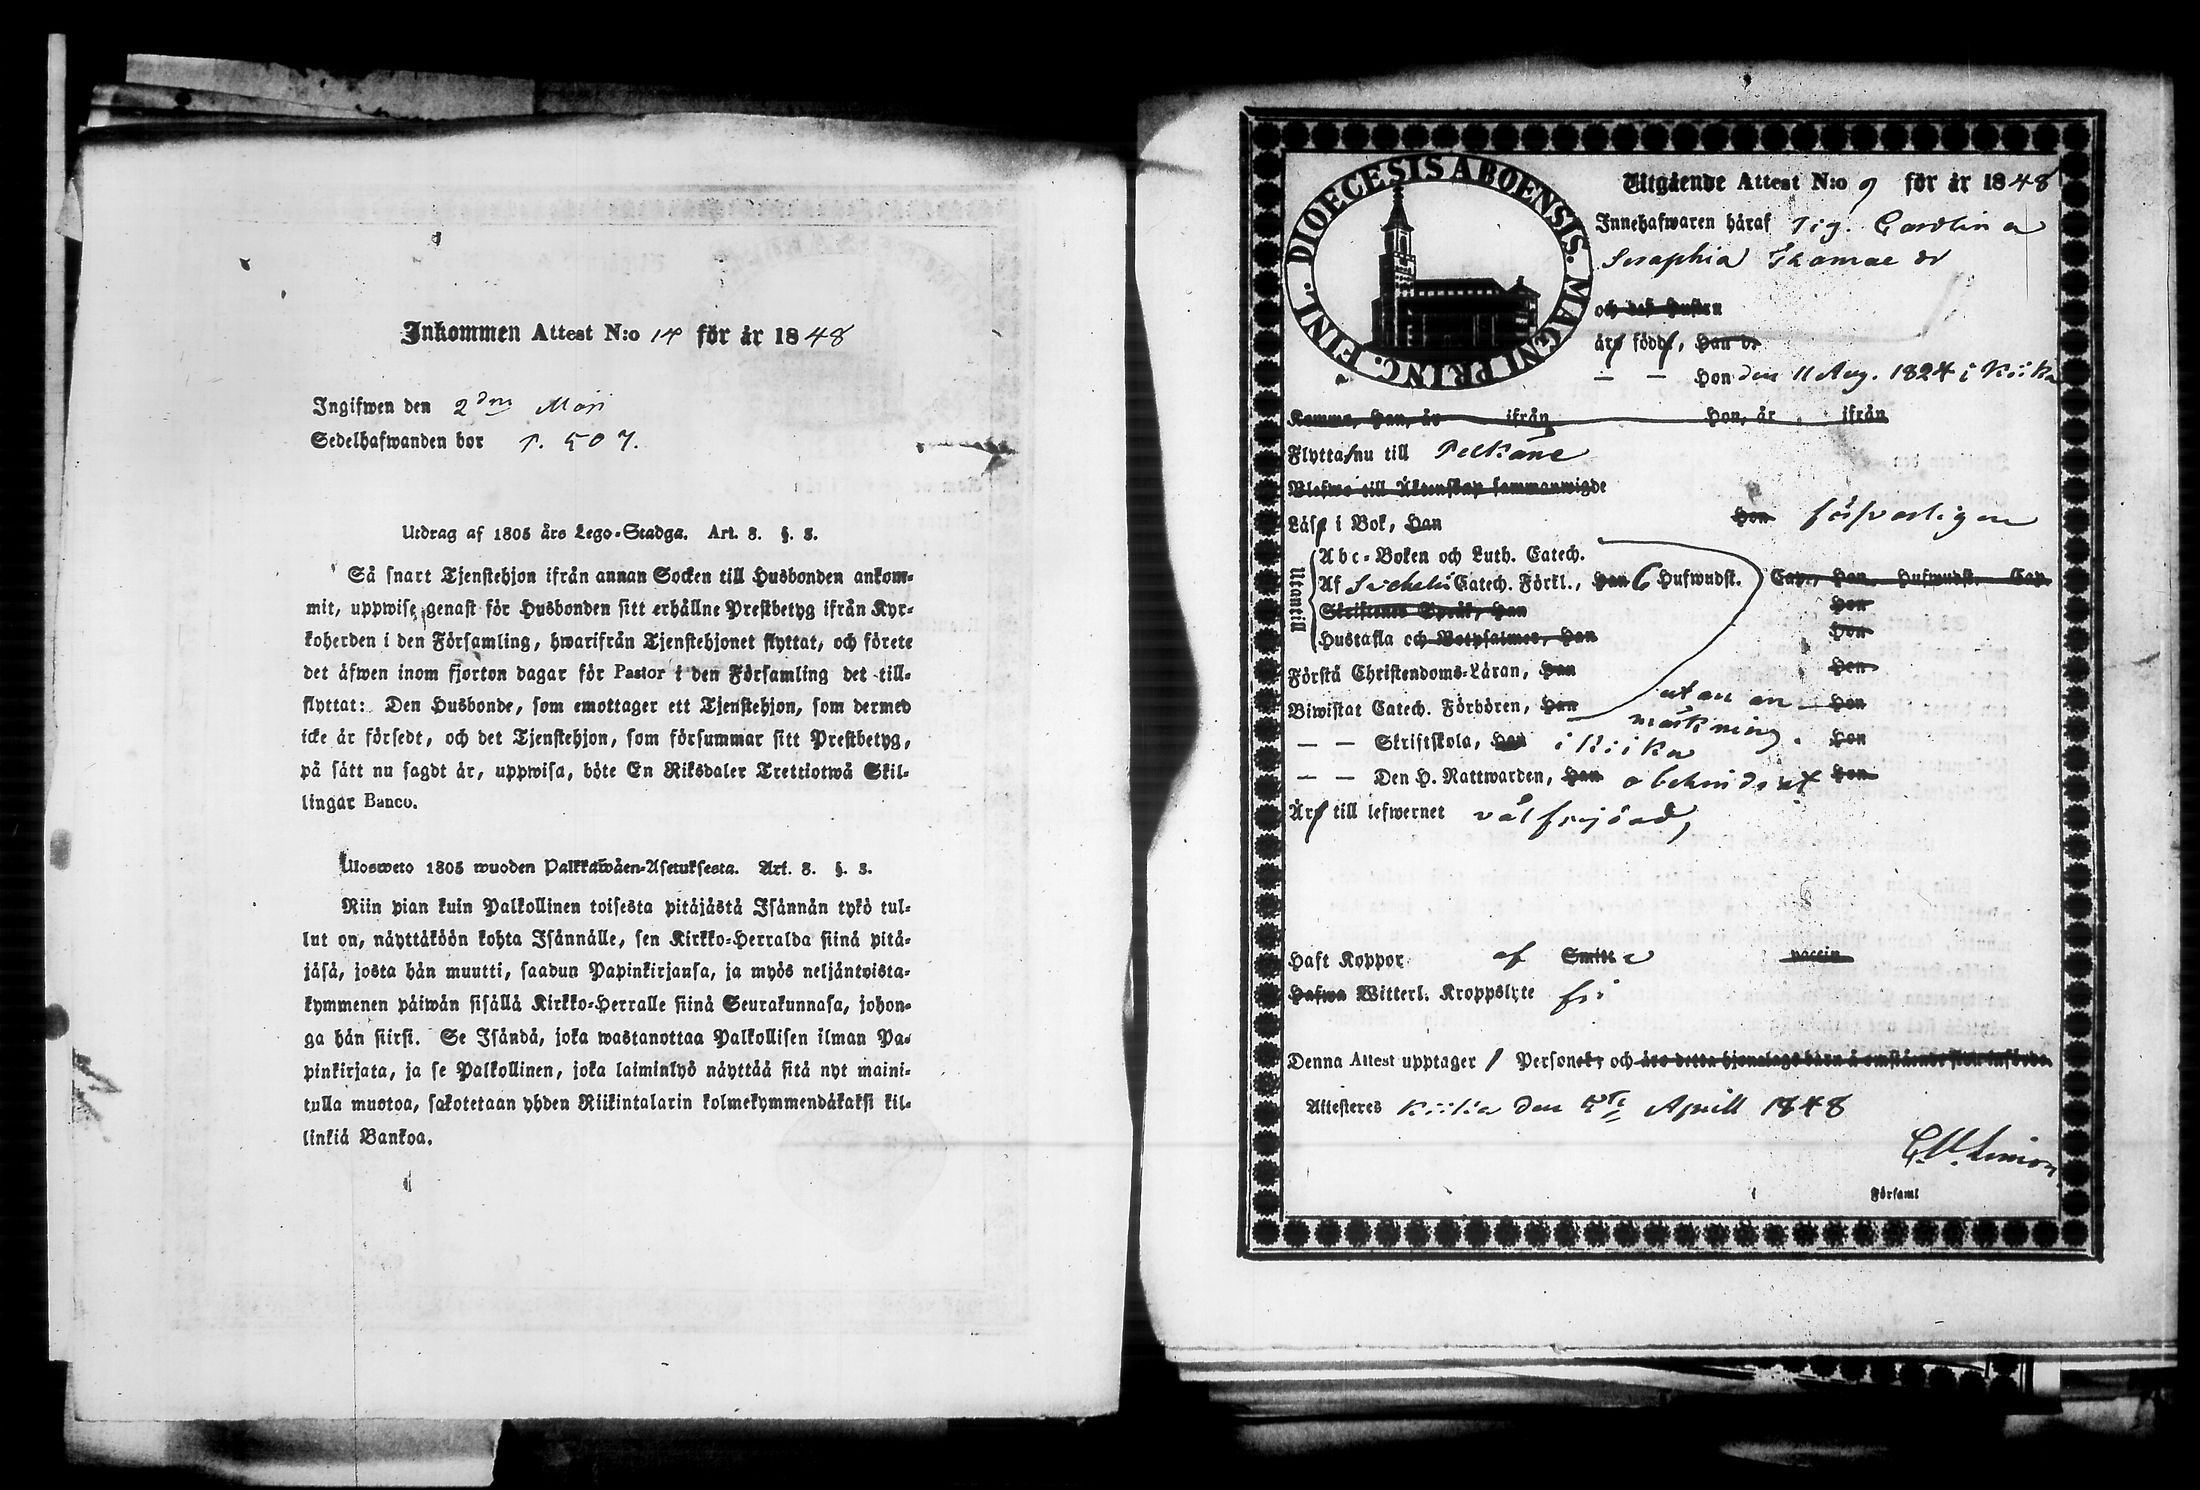 Inkommen Attest N:o 14 för år 1848
Ingifwen den 2dra Maji
Sedelhafwanden bor p. 507.
Utdrag af 1805 års Lego-Stadga. Art. 8. §. 3.
Så snart Tjenstehjon ifrån annan Socken till Husbonden ankom-
mit, uppwise genast för Husbonden sitt erhållne Prestbetyg ifrån Kyr-
koherden i den Församling, hwarifrån Tjenstehjonet flyttat, och förete
det äfwen inom fjorton dagar för Pastor i den Församling det till-
flyttat: Den Husbonde, som emottager ett Tjenstehjon, som dermed
icke är försedt, och det Tjenstehjon, som försummar sitt Prestbetyg,
på sätt nu sagdt är, uppwisa, böte En Riksdaler Trettiotwå Skil-
lingar Banco.
Ulosweto 1805 wuoden Palkkawäen-Asetuksesta. Art. 8. §. 3.
Niin pian kuin Palkollinen toisesta pitäjästä Isännän tykö tul-
lut on, näyttäköön kohta Isännälle, sen Kirkko-Herralda siinä pitä-
jäsä, josta hän muutti, saadun Papinkirjansa, ja myös neljäntoista-
kymmenen päiwän sisällä Kirkko-Herralle siinä Seurakunnasa, johon-
ga hän siirsi. Se Isändä, joka wastanottaa Palkollisen ilman Pa-
pinkirjata, ja se Palkollinen, joka laiminlyö näyttää sitä nyt maini-
tulla muotoa, sakotetaan yhden Riikintalarin kolmekymmendäkaksi kil-
linkiä Bankoa.
DIOECESIS ABOENSIS. MAGNI PRINC. FINL.
Utgående Attest N:o 9 för år 1848
Innehafwaren häraf Pig. Carolina
Seraphia Thomae dr
och dess Hustru
äro födde, Han d:
— — Hon den 11 Aug. 1824 i Kiika
Kommo, Han, år ifrån Hon, år ifrån
Flytta nu till Pelkäne
Blefwo till Äktenskap sammanwigde
Läsa i Bok, Han Hon försvarligen
Utantill
Abc-Boken och Luth. Catech.
Af Svebelii Catech. Förkl., Han 6 Hufwudst. Cap., Hon Hufwudst. Cap.
Skriftenes Språk, Han Hon
Hustafla och Botpsalmer, Han Hon
Förstå Christendoms-Läran, Han Hon
Biwistat Catech. Förhören, Han utan an- Hon
märkning.
— — Skriftskola, Han i Kiika Hon
— — Den H. Nattwarden, Han obehindrat Hon
Äro till lefwernet välfrejdad,
Haft Koppor af Smitt vaccin
Hafwa Witterl. Kroppslyte fri
Denna Attest upptager 1 Personer och äro detta hjonelags barn å omstående sida införde.
Attesteres Kiika den 5te Aprill 1848
Församl